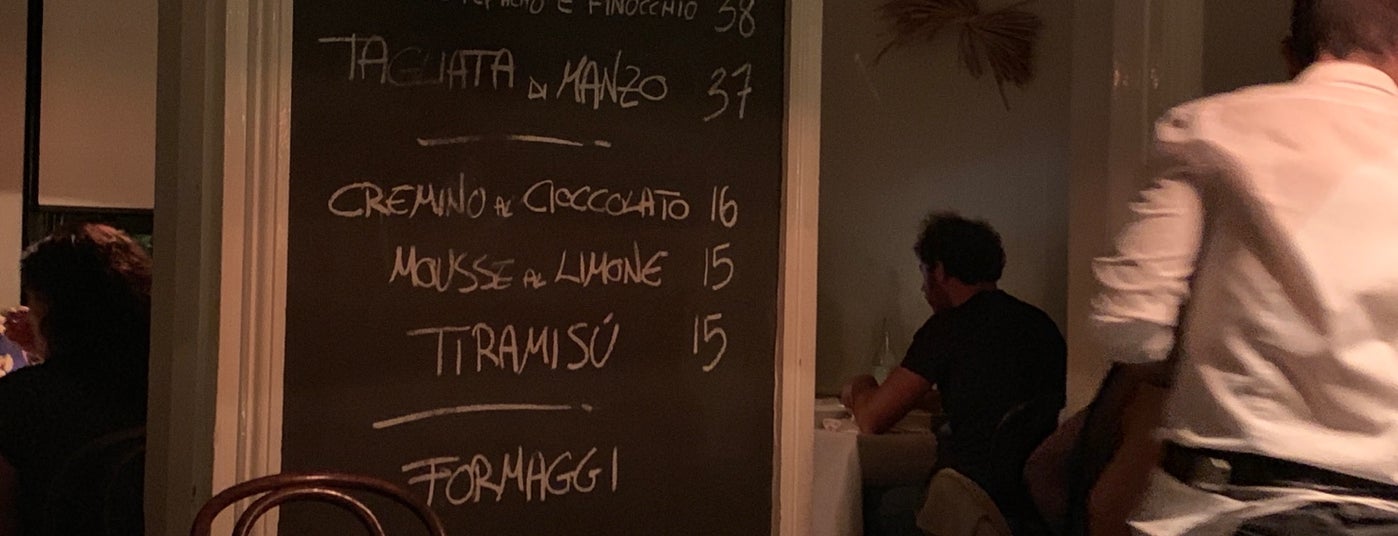 E FINOCCHIO 38
TAGLIATA DI MANZO 37
CREMINO AL CIOCCOLATO 16
MOUSSE AL LIMONE 15
TIRAMISÚ 15
FORMAGGI